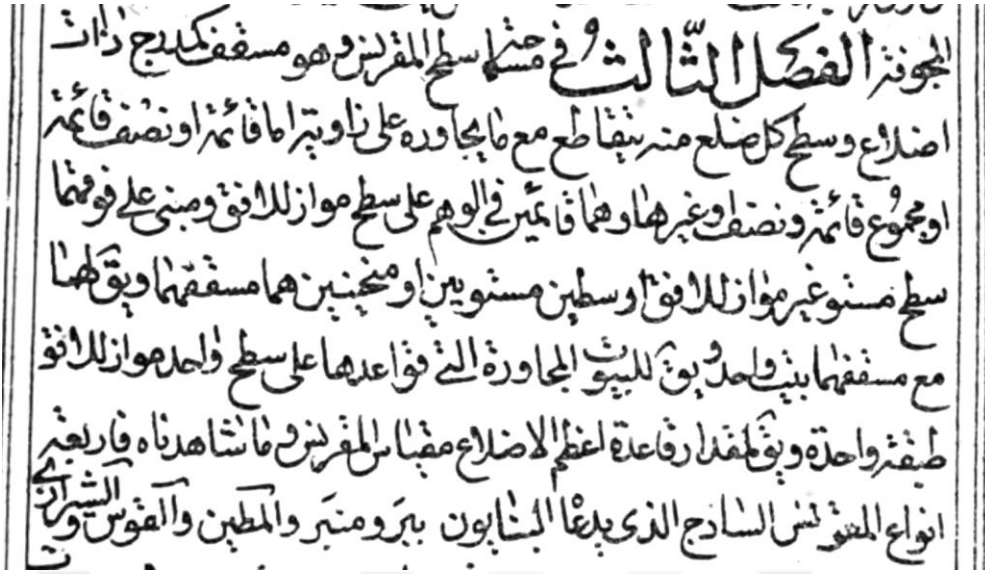 المجوفة الفصل الثالث في مساحة سطح المقرنس وهو مسقف كمدرج ذات
اضلاع وسطح كل ضلع منه يتقاطع مع ما يجاوره على زاوية اما قائمة او نصف قائمة
او مجموع قائمة ونصف او غيرها وهما قائمين في الوهم على سطح مواز للافق ومبنى على فوقهما
سطح مستو غير مواز للافق او سطحين مستويين او منحنيين هما مسقفهما ويق لهما
مع مسقفهما بيت واحد ويق للبيوت المجاورة التي قواعدها على سطح واحد مواز للافق
طبقة واحدة ويق لمقدار قاعدة اعظم الاضلاع مقياس المقرنس وما شاهدناه فاربعة
انواع المقرنس الساذج الذي يدعا البنايون ومنبر والمطين والقوس والشيرازي